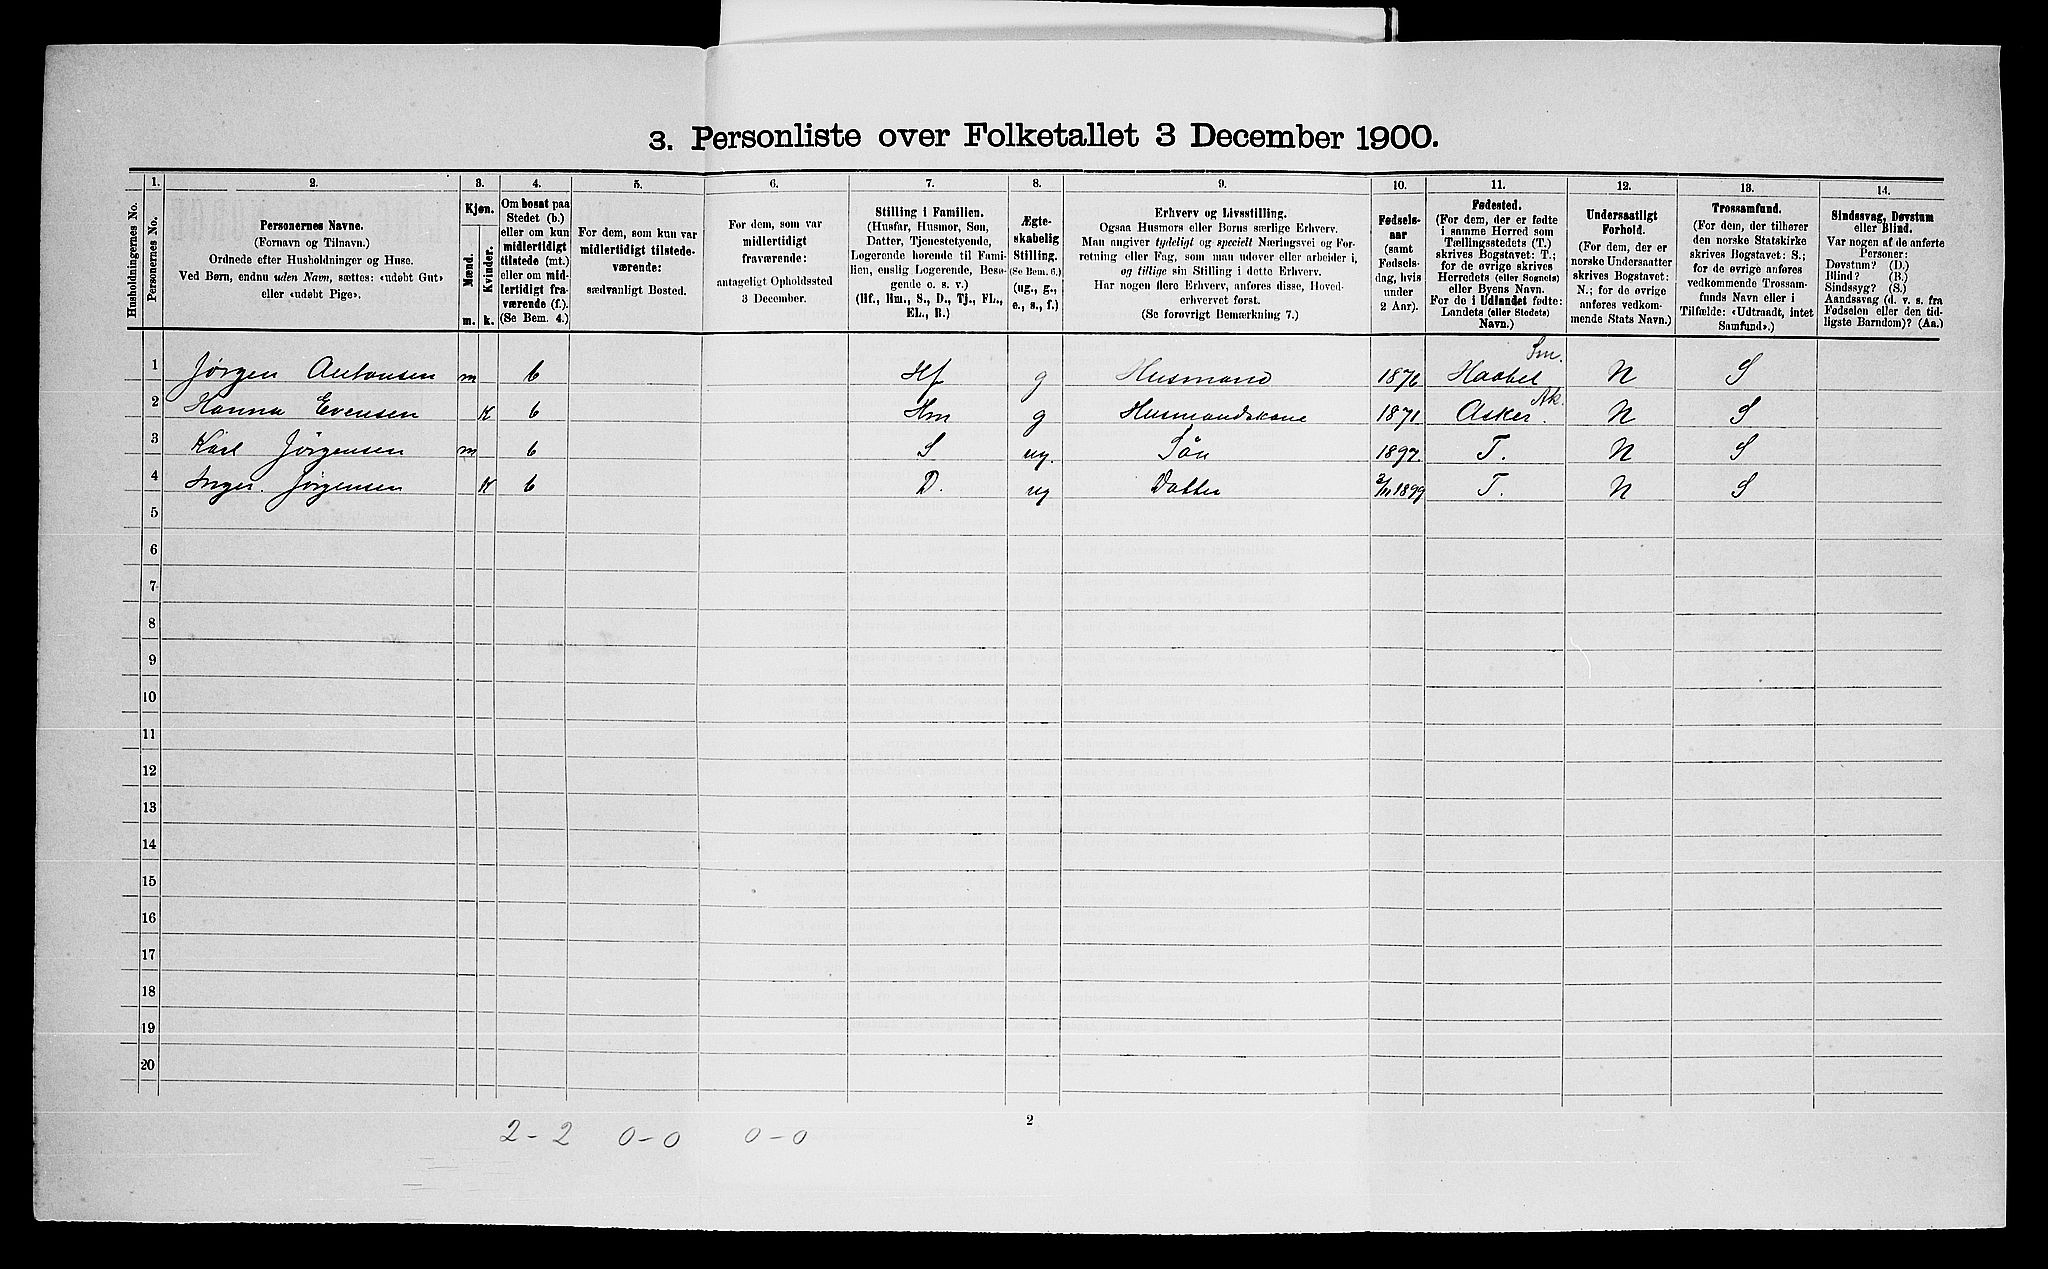 3. Personliste over Folketallet 3 December 1900.
Husholdningernes No.
1.
Personernes No.
2.
Personernes Navne.
(Fornavn og Tilnavn.)
Ordnede efter Husholdninger og Huse.
Ved Børn, endnu uden Navn, sættes: «udøbt Gut»
eller «udøbt Pige».
3.
Kjøn.
Mænd.
Kvinder.
m. k.
4.
Om bosat paa
Stedet (b.)
eller om kun
midlertidigt
tilstede (mt.)
eller om mid-
lertidigt fra-
værende (f.).
(Se Bem. 4.)
5.
For dem, som kun var
midlertidigt tilstede-
værende:
sædvanligt Bosted.
6.
For dem, som var
midlertidigt
fraværende:
antageligt Opholdssted
3 December.
7.
Stilling i Familien.
(Husfar, Husmor, Søn,
Datter, Tjenestetyende,
Logerende hørende til Fami-
lien, enslig Logerende, Besø-
gende o. s. v.)
(Hf., Hm., S., D., Tj., FL.,
EL., B.)
8.
Ægte-
skabelig
Stilling.
(Se Bem. 6.)
(ug., g.,
e., s., f.)
9.
Erhverv og Livsstilling.
Ogsaa Husmors eller Børns særlige Erhverv.
Man angiver tydeligt og specielt Næringsvei og For-
retning eller Fag, som man udøver eller arbeider i,
og tillige sin Stilling i dette Erhverv.
Har nogen flere Erhverv, anføres disse, Hoved-
erhvervet først.
(Se forøvrigt Bemærkning 7.)
10.
Fødsels-
aar
(samt
Fødsels-
dag, hvis
under
2 Aar).
11.
Fødested.
(For dem, der er fødte
i samme Herred som
Tællingsstedets (T.)
skrives Bogstavet: T.;
for de øvrige skrives
Herredets (eller Sognets)
eller Byens Navn.
For de i Udlandet fødte:
Landets (eller Stedets)
Navn.)
12.
Undersaatligt
Forhold.
(For dem, der er
norske Undersaatter
skrives Bogstavet:
N.; for de øvrige
anføres vedkom-
mende Stats Navn.)
13.
Trossamfund.
(For dem, der tilhører
den norske Statskirke
skrives Bogstavet: S.;
for de øvrige anføres
vedkommende Trossam-
funds Navn eller i
Tilfælde: «Udtraadt, intet
Samfund».)
14.
Sindssvag, Døvstum
eller Blind.
Var nogen af de anførte
Personer:
Døvstum? (D.)
Blind? (B.)
Sindssyg? (S.)
Aandssvag (d. v. s. fra
Fødselen eller den tid-
ligste Barndom)? (Aa.)
1 Jørgen Antonsen m b Hf g Husmand 1876 Haabøl Sm. N S
2 Hanna Evensen k b Hm g Husmandskone 1871 Asker Ak. N S
3 Karl Jørgensen m b S ug. Søn 1897. T. N S
4 Inger Jørgensen k b D. ug Datter 3/11 1899 T. N S
5
6
7
8
9
10
11
12
13
14
15
16
17
18
19
20
2
2-2 0-0 0-0